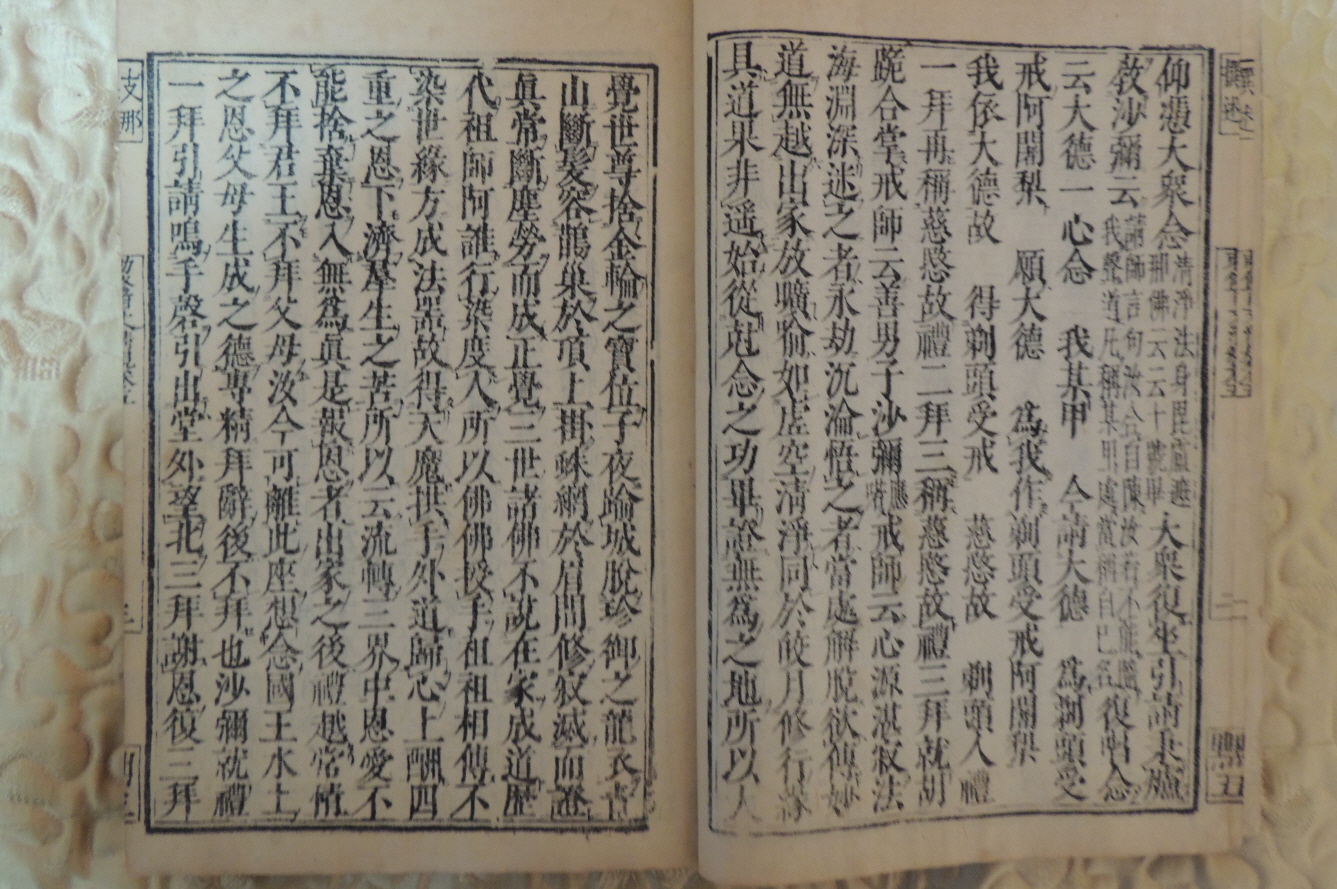 仰憑大衆念清淨法身毘盧遮那佛云云十號畢大衆復坐引請秉爐
教沙彌云請師言句汝合自陳汝若不能隨我聲道凡稱某甲處當稱自己名復唱念
云大德一心念　我某甲　今請大德　爲剃頭受
戒阿闍梨　願大德　爲我作剃頭受戒阿闍梨
我依大德故　得剃頭受戒　慈愍故　剃頭人禮
一拜再稱慈愍故禮二拜三稱慈愍故禮三拜就胡
跪合掌戒師云善男子沙彌應喏戒師云心源湛寂法
海淵深迷之者永劫沉淪悟之者當處解脫欲傳妙
道無越出家放曠喻如虛空清淨同於皎月修行緣
具道果非遥始從尅念之功畢證無爲之地所以大
覺世尊捨金輪之寶位子夜踰城脫珍御之龍衣靑
山斷髮容鵲巢於頂上掛蛛網於眉間修寂滅而證
眞常斷塵勞而成正覺三世諸佛不說在家成道歷
代祖師阿誰行染度人所以佛佛授手祖祖相傳不
染世緣方成法器故得天魔拱手外道歸心上酬四
重之恩下濟羣生之苦所以云流轉三界中恩愛不
能捨棄恩入無爲眞是報恩者出家之後禮越常情
不拜君王不拜父母汝今可離此座想念國王水土
之恩父母生成之德專精拜辭後不拜也沙彌就禮
一拜引請鳴手磬引出堂外望北三拜謝恩復三拜
支那